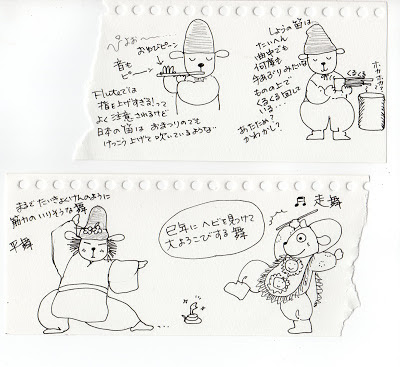 ぴよぉ〜〜
おゆびピーン
音も
ピーーン
Fluteでは
指を上げすぎる!って
よく注意されるけど
日本の笛は おまつりのでも
けっこう上げて吹いているような…
しょうの笛は、
たいへん
曲中でも
何度も
手あぶりみたいな
ものの上で
くるくる回して
いる…
あたため?
かわかし?
くるくる
ホカホカ?
まるでたいきょくけんのように
筋力のいりそうな舞
平舞
巳年にヘビを見つけて
大よろこびする舞
♫ 走舞